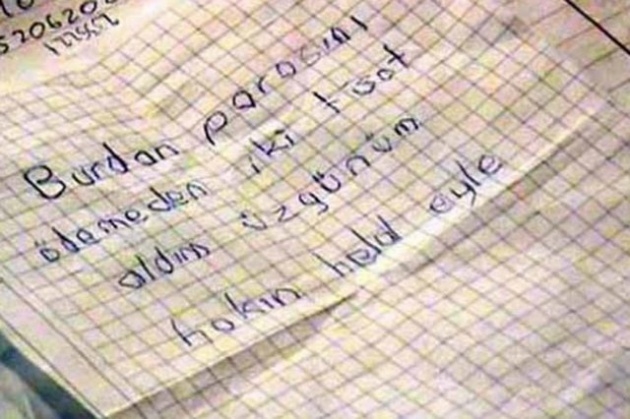 5206206
Burdan parasını
ödemeden iki tişot
aldım üzgünüm
hakın helal eyle